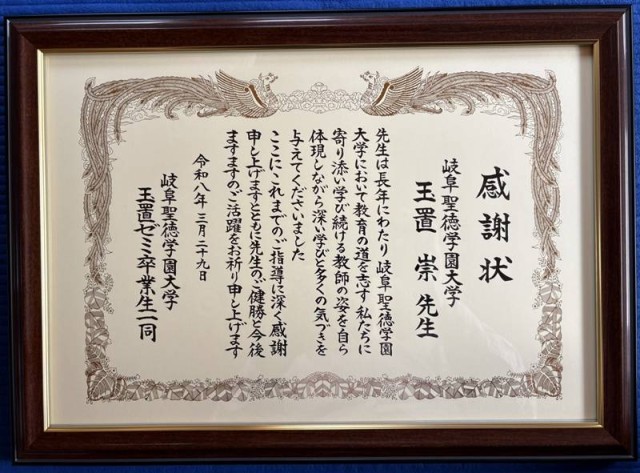 感謝状
岐阜聖徳学園大学
玉置 崇 先生
先生は長年にわたり 岐阜聖徳学園
大学において教育の道を志す私たちに
寄り添い学び続ける教師の姿を自ら
体現しながら深い学びと多くの気づきを
与えてくださいました
ここにこれまでのご指導に深く感謝
申し上げますとともに先生のご健勝と今後
ますますのご活躍をお祈り申し上げます
令和八年 三月二十九日
岐阜聖徳学園大学
玉置ゼミ卒業生一同